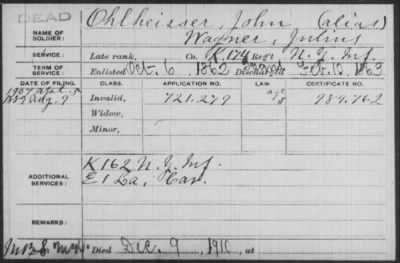 DEAD
NAME OF SOLDIER: Ohlheisser, John (alias)
Wagner, Julius
SERVICE: Late rank, Co. K, 174 Reg't N. Y. Inf.
TERM OF SERVICE: Enlisted Oct. 6, 1862 Discharged Feb. 10, 1863
DATE OF FILING. CLASS. APPLICATION NO. CERTIFICATE NO.
1889 Aug. 7 Invalid, 721.279 989.762
Widow,
Minor,
ADDITIONAL SERVICES: K 162 N. Y. Inf.
E 1 La. Cav.
REMARKS:
Died Dec. 9, 1911, at